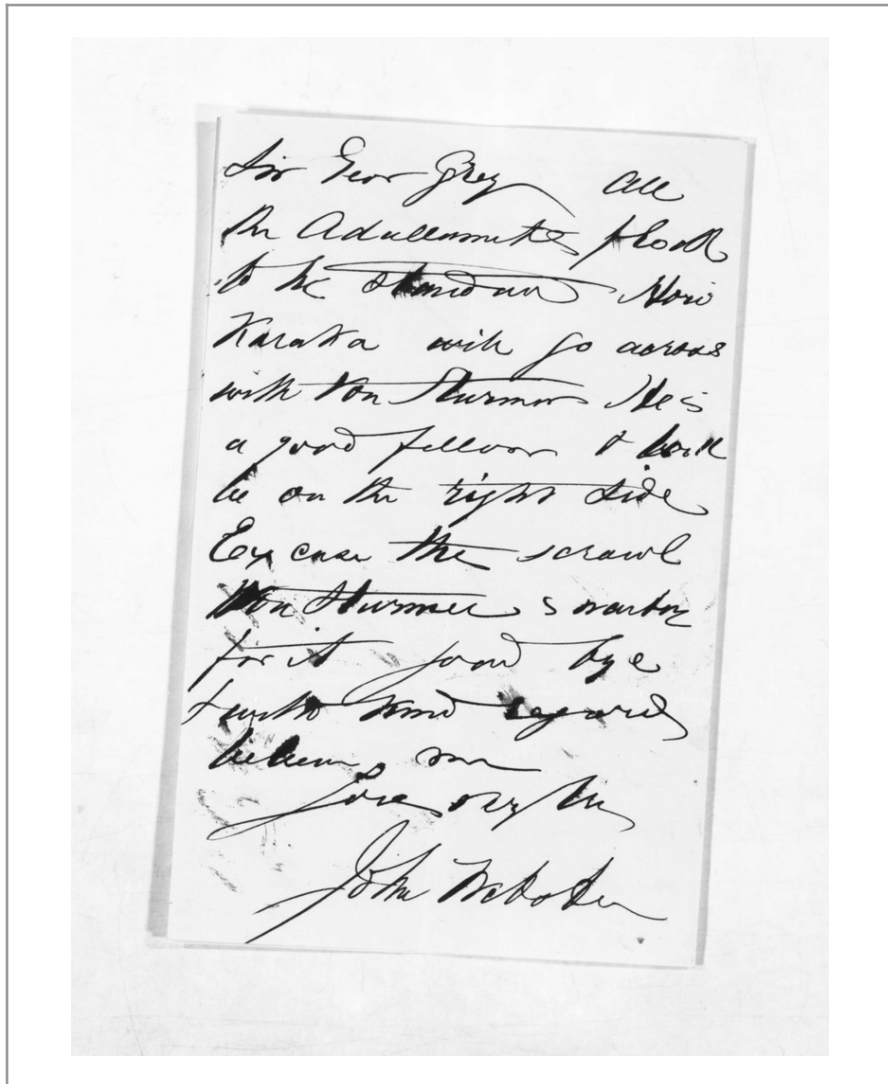 Sir Geor Grey all
the Adullamites flock
to the standard Hori
Karaka will go across
with Von Sturmer He is
a good fellow & will
be on the right side
Excuse the scrawl
Von Sturmer is waiting
for it good bye
& with kind regards
believe me
John Webster